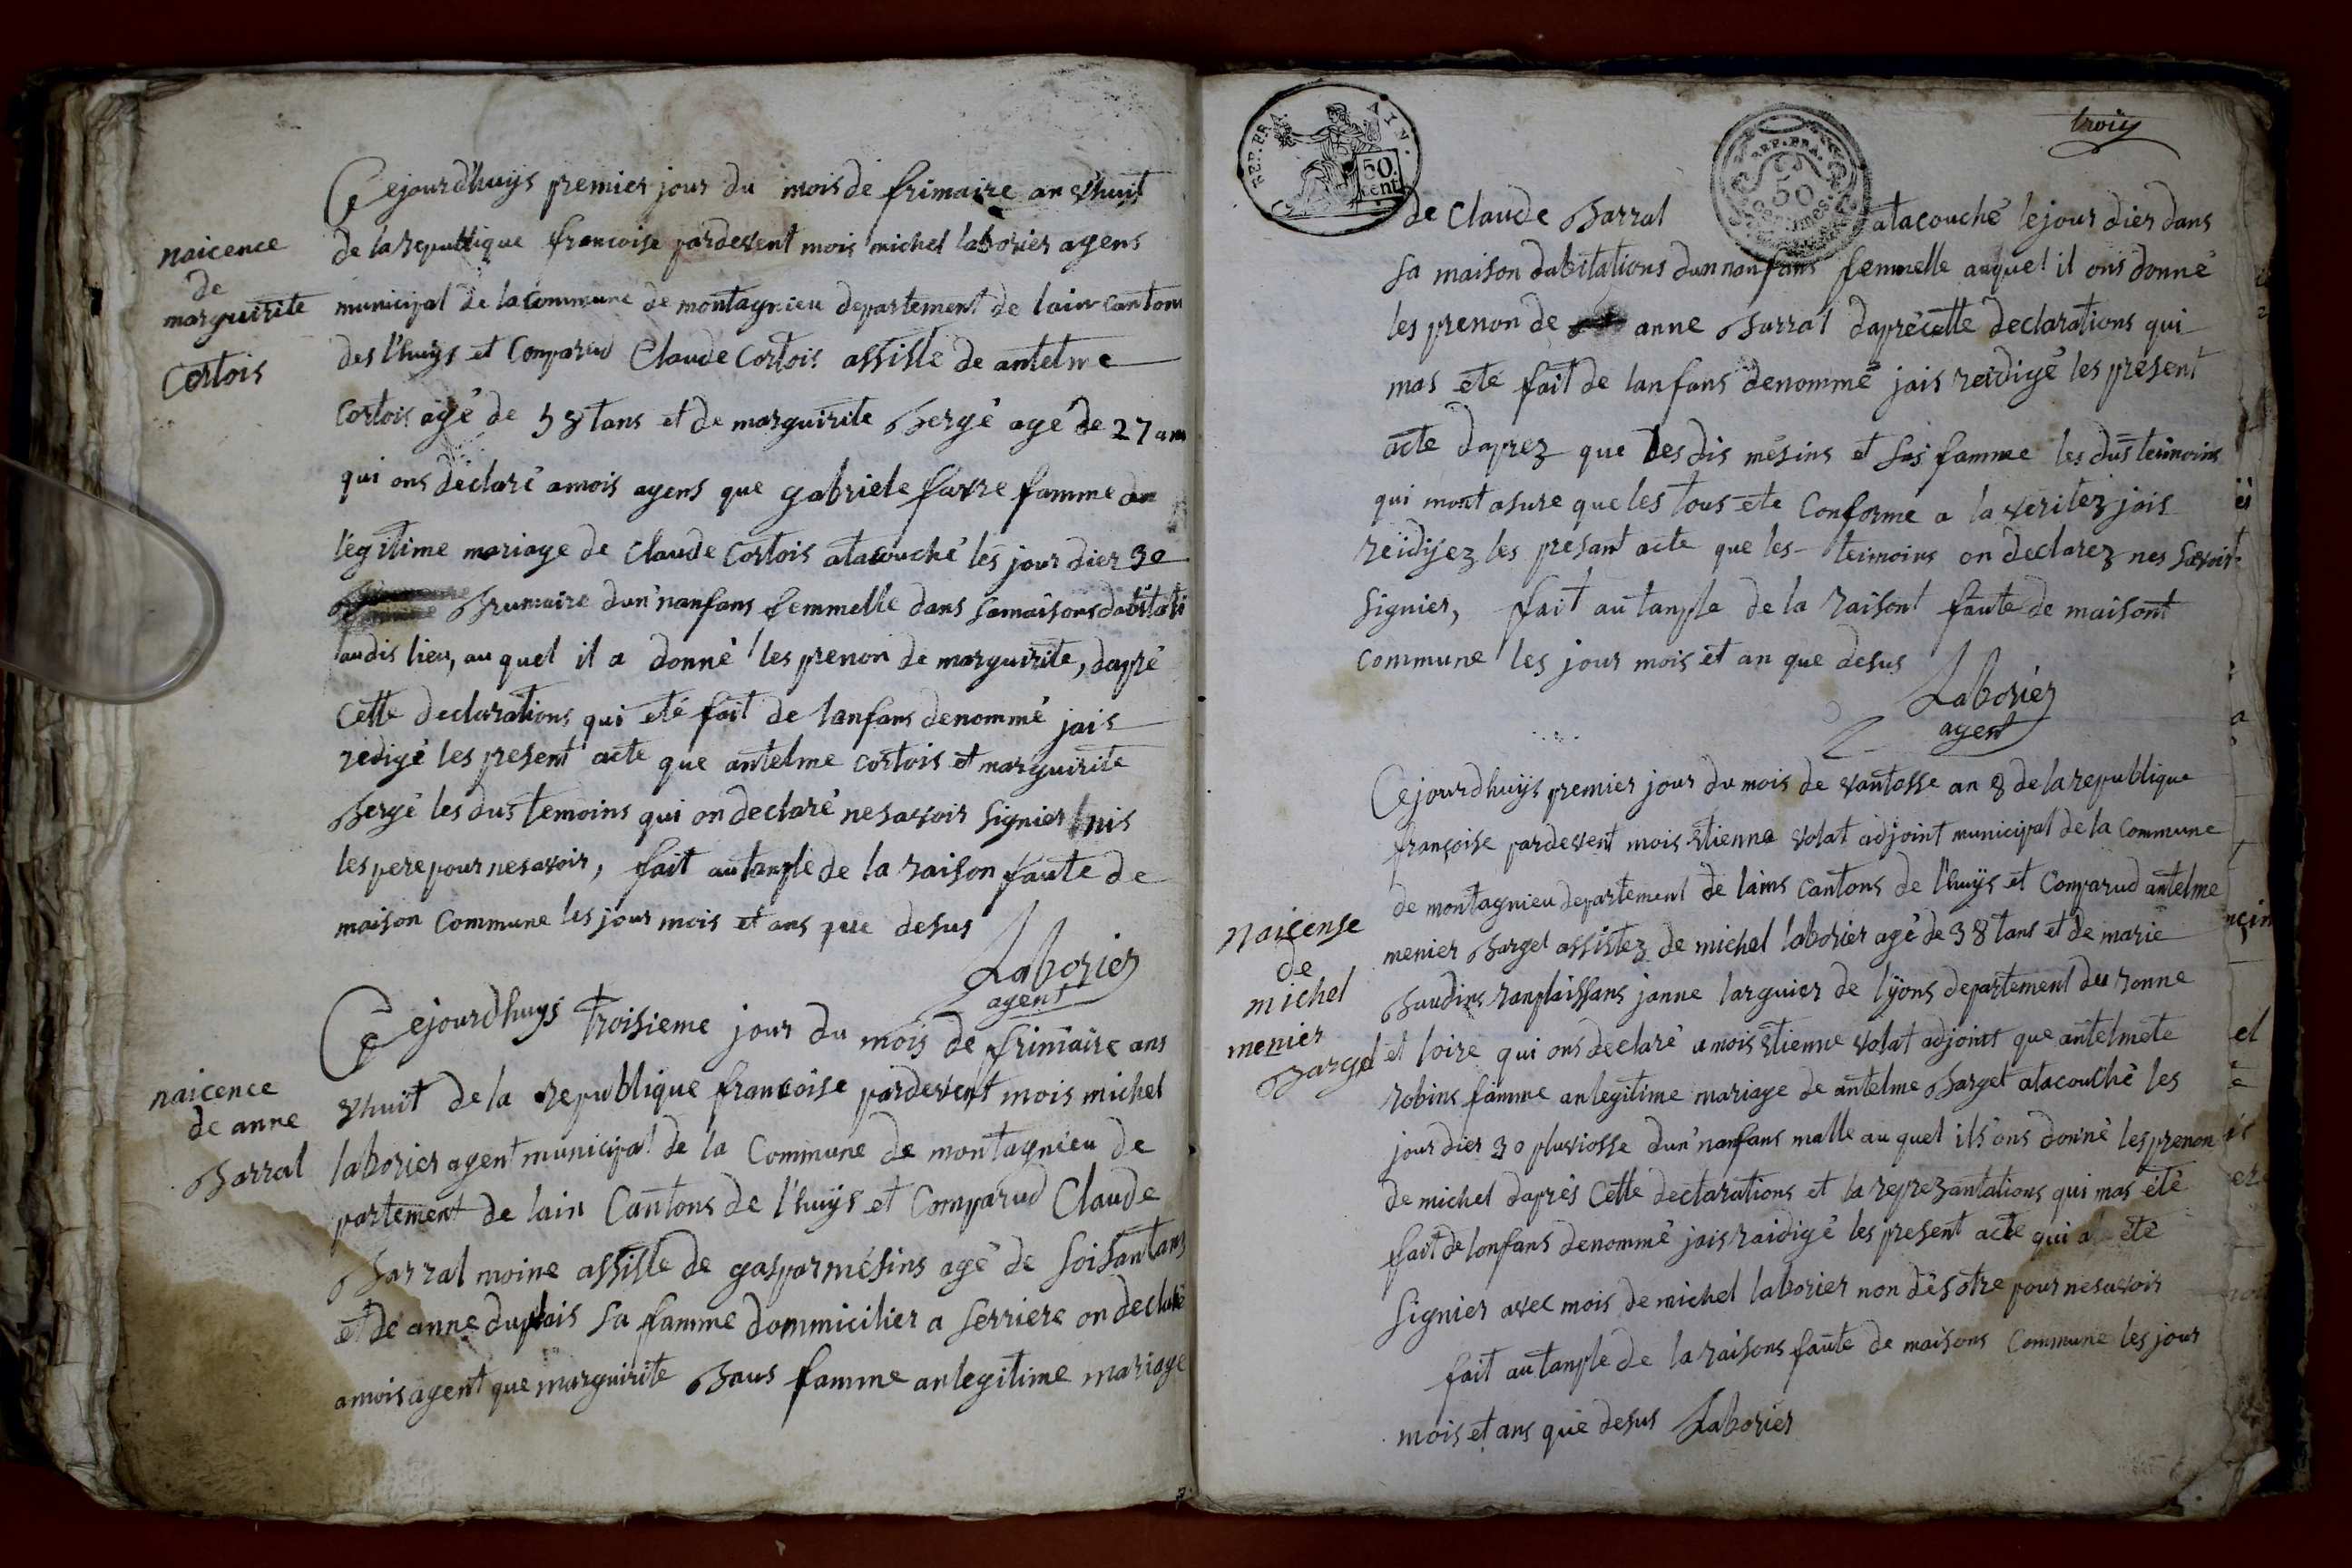 Cejourdhuys premier jour du mois de frimaire an vhuit
naicence
de
marguirite
Cortois
de la republique francoise pardevent mois michel laborier agens
municipal de la Commune de montagnieu departement de lain canton
des l'huys et Comparud Claude Cortois assiste de antelme
Cortois agé de 58 tans et de marguirite Bergé agé de 27 ans
qui ons declaré amois agens que gabriele favre famme an
légitime mariage de Claude Cortois atacouché les jour dier 30
Brumaire dun'nanfans femmelle dans samaisons dabitati
audis lieu, au quel il a donné les prenon de marguirite, dapré
Cette declarations qui eté fait de lanfans denommé jais
redigé les present acte que antelme cortois et marguirite
Bergé les dus temoins qui on declaré nesavoir signier nis
les pere pour nesavoir, fait autanple de la raison faute de
maison Commune les jour mois et ans que desus
Laborier
agent
Cejourdhuys troisieme jour du mois de frimaire ans
naicence
de anne
Barral
vhuit de la republique francoise pardevent mois michel
laborier agent municipal de la Commune de montagnieu de
partement de lain Cantons de l'huys et Comparud Claude
Barral moine assiste de gaspar mésins agé de soisantans
et de anne duplais sa famme dommicilier a serriere on declaré
amois agent que marguirite Baus famme anlegitime mariage
REP. FRA.
AIN.
50
cent
REP. FRA.
50
centimes.
trois
de Claude Barral atacouché lejour dier dans
sa maison dabitations dunnanfans femmelle auquel il ons donné
les prenon de anne Barral daprécette declarations qui
mas eté fait de lanfans denommé jais reidigé les présent
acte daprez que les dis mésins et sas famme les dus teimoins
qui mont asure que les tous ete Conforme a la veritez jais
reidijez les presant acte que les teimoins on declarez nes savoir
signier, fait au tanple de la raisont faute de maisont
commune les jour mois et an que desus
Laborier
agent
Cejourdhuijs premier jour du mois de vantosse an 8 de la republique
françoise pardevent mois etienne volat adjoint municipal de la Commune
de montagnieu departement de lains cantons de l'huijs et Comparud antelme
naicense
de
michel
menier
Barget
menier Barget assistez de michel laborier agé de 38 tans et de marie
Baudins ranplaissans janne larguier de lyons departement du ronne
et loire qui ons declaré amois etienne volat adjoint que antelmete
robins famme anlegitime mariage de antelme Barget atacouché les
jour dier 30 pluviosse dun'nanfans malle au quel ils'ons donné les prenon
de michel daprés Cette declarations et la reprezantations qui mas été
fait de lonfans denommé jais raidigé les present acte qui a eté
signier avec mois de michel laborier non dés otre pour nesavoir
fait au tanple de la raisons faute de maisons Commune les jour
mois et ans que desus Laborier